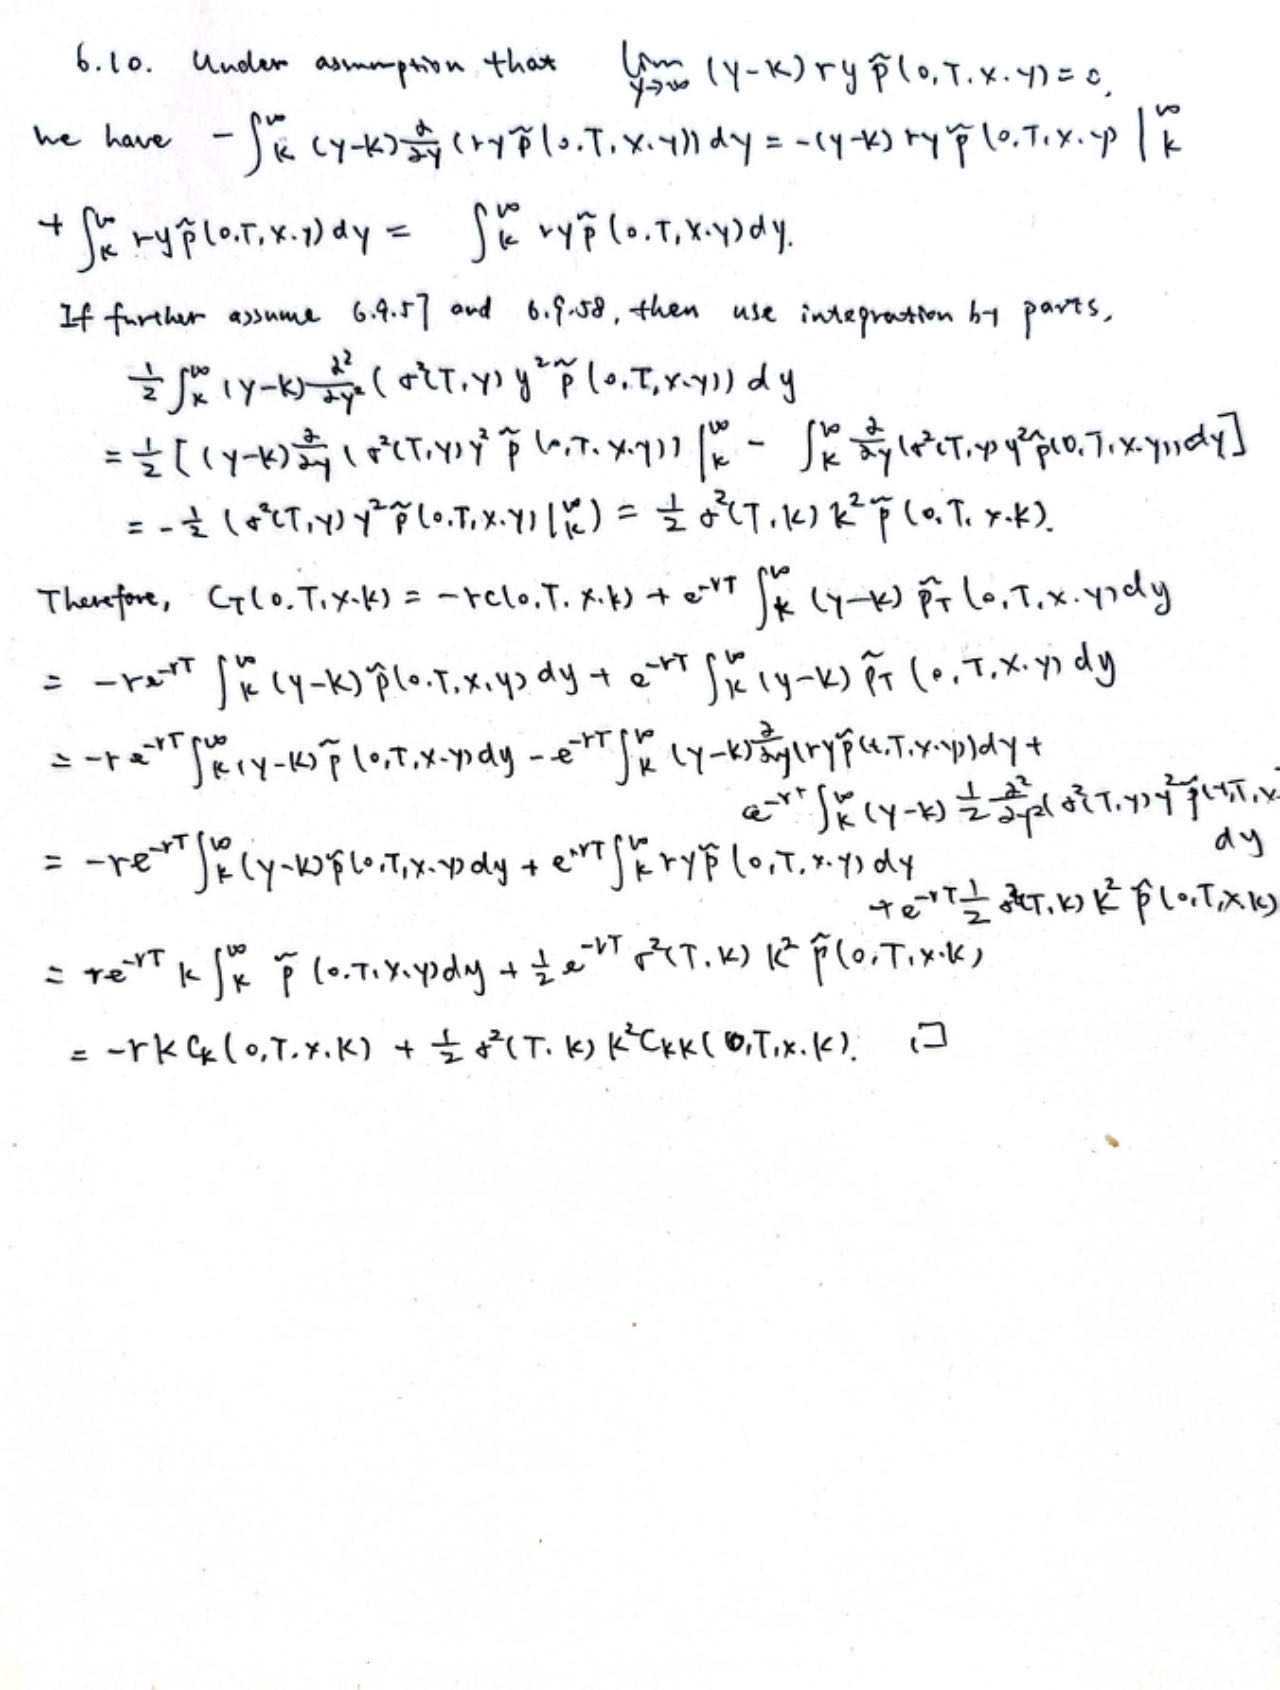 6.10. Under assumption that lim_{y→∞} (y-K) r y p̃(0,T,x,y) = 0,
we have -∫_K^∞ (y-K) ∂/∂y (r y p̃(0,T,x,y)) dy = -(y-K) r y p̃(0,T,x,y) |_K^∞
+ ∫_K^∞ r y p̃(0,T,x,y) dy = ∫_K^∞ r y p̃(0,T,x,y) dy.
If further assume 6.9.57 and 6.9.58, then use integration by parts,
1/2 ∫_K^∞ (y-K) ∂²/∂y² (σ²(T,y) y² p̃(0,T,x,y)) dy
= 1/2 [(y-K) ∂/∂y (σ²(T,y) y² p̃(0,T,x,y)) |_K^∞ - ∫_K^∞ ∂/∂y (σ²(T,y) y² p̃(0,T,x,y)) dy]
= -1/2 (σ²(T,y) y² p̃(0,T,x,y) |_K^∞) = 1/2 σ²(T,K) K² p̃(0,T,x,K).
Therefore, C_T(0,T,x,K) = -rc(0,T,x,K) + e^{-rT} ∫_K^∞ (y-K) p̃_T(0,T,x,y) dy
= -re^{-rT} ∫_K^∞ (y-K) p̃(0,T,x,y) dy + e^{-rT} ∫_K^∞ (y-K) p̃_T(0,T,x,y) dy
= -re^{-rT} ∫_K^∞ (y-K) p̃(0,T,x,y) dy - e^{-rT} ∫_K^∞ (y-K) ∂/∂y (r y p̃(t,T,x,y)) dy +
e^{-rT} ∫_K^∞ (y-K) 1/2 ∂²/∂y² (σ²(T,y) y² p̃(t,T,x
dy
= -re^{-rT} ∫_K^∞ (y-K) p̃(0,T,x,y) dy + e^{-rT} ∫_K^∞ r y p̃(0,T,x,y) dy
+ e^{-rT} 1/2 σ²(T,K) K² p̃(0,T,x,K)
= re^{-rT} K ∫_K^∞ p̃(0,T,x,y) dy + 1/2 e^{-rT} σ²(T,K) K² p̃(0,T,x,K)
= -rK C_K(0,T,x,K) + 1/2 σ²(T,K) K² C_KK(0,T,x,K). □